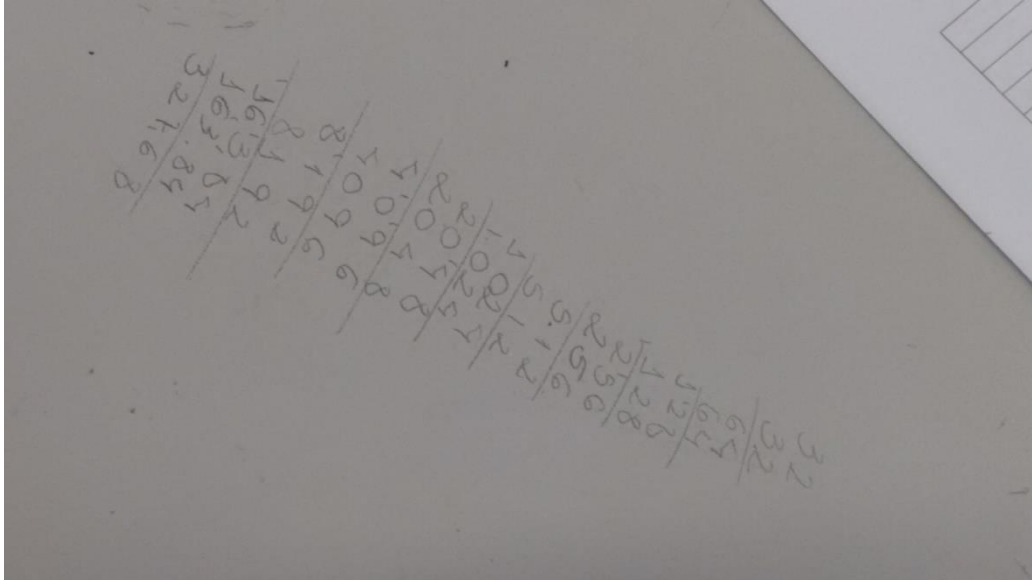 32
32
64
64
128
128
256
256
512
512
1024
1024
2048
2048
4096
4096
8192
8192
16384
16384
32768